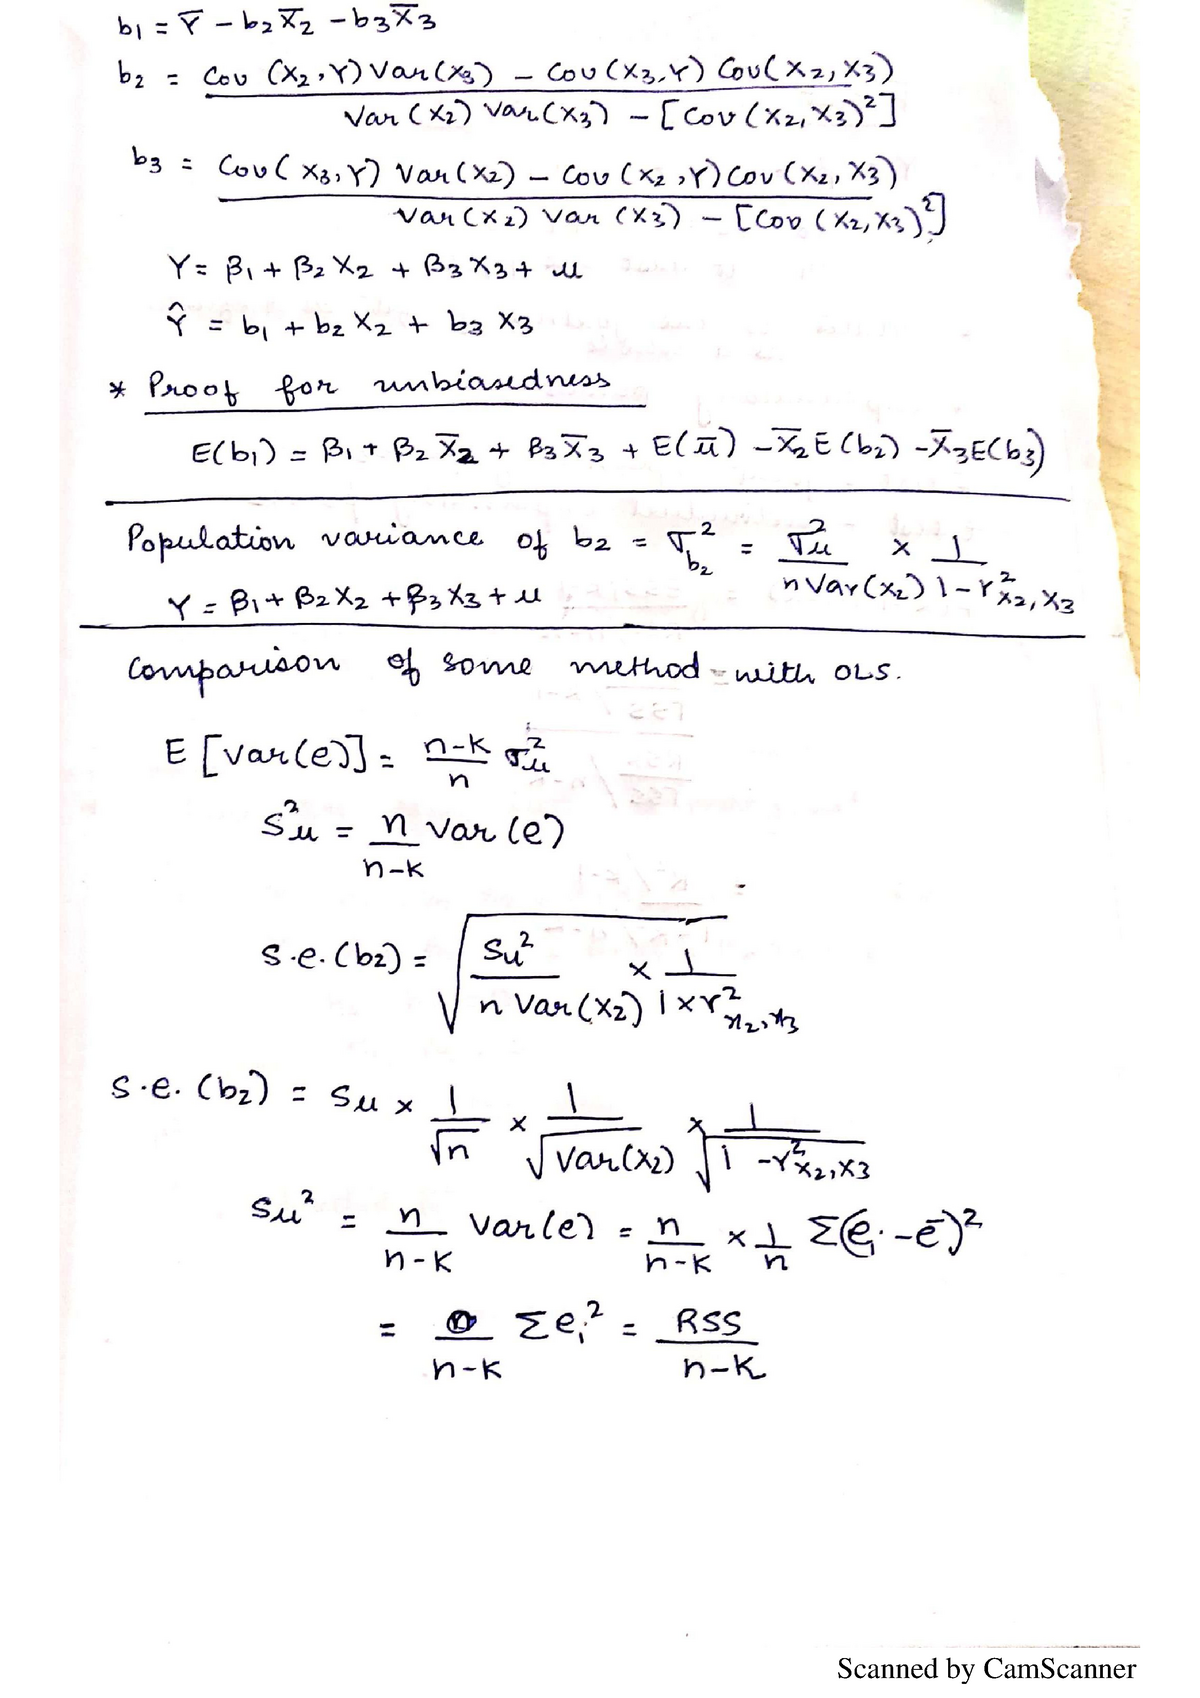 b1 = Ȳ - b2X̄2 - b3X̄3
b2 = Cov (X2, Y) Var (X3) - Cov (X3, Y) Cov (X2, X3)
Var (X2) Var (X3) - [Cov (X2, X3)²]
b3 = Cov (X3, Y) Var (X2) - Cov (X2, Y) Cov (X2, X3)
Var (X2) Var (X3) - [Cov (X2, X3)²]
Y = β1 + β2 X2 + β3 X3 + u
Ŷ = b1 + b2 X2 + b3 X3
* Proof for unbiasedness
E(b1) = β1 + β2 X̄2 + β3 X̄3 + E(ū) - X̄2 E(b2) - X̄3 E(b3)
Population variance of b2 = σ²b2 = σ²u / n Var(X2) × 1 / 1 - r²X2, X3
Y = β1 + β2X2 + β3X3 + u
Comparison of some method with OLS.
E [Var(e)] = n-k / n σ²u
S²u = n / n-k Var (e)
s.e. (b2) = √ Su² / n Var (X2) × 1 / 1 × r²x2, x3
s.e. (b2) = Su × 1 / √n × 1 / √Var(X2) × 1 / √1 - r²X2, X3
Su² = n / n-k Var(e) = n / n-k × 1 / n Σ(ei - ē)²
= / n-k Σei² = RSS / n-k
Scanned by CamScanner